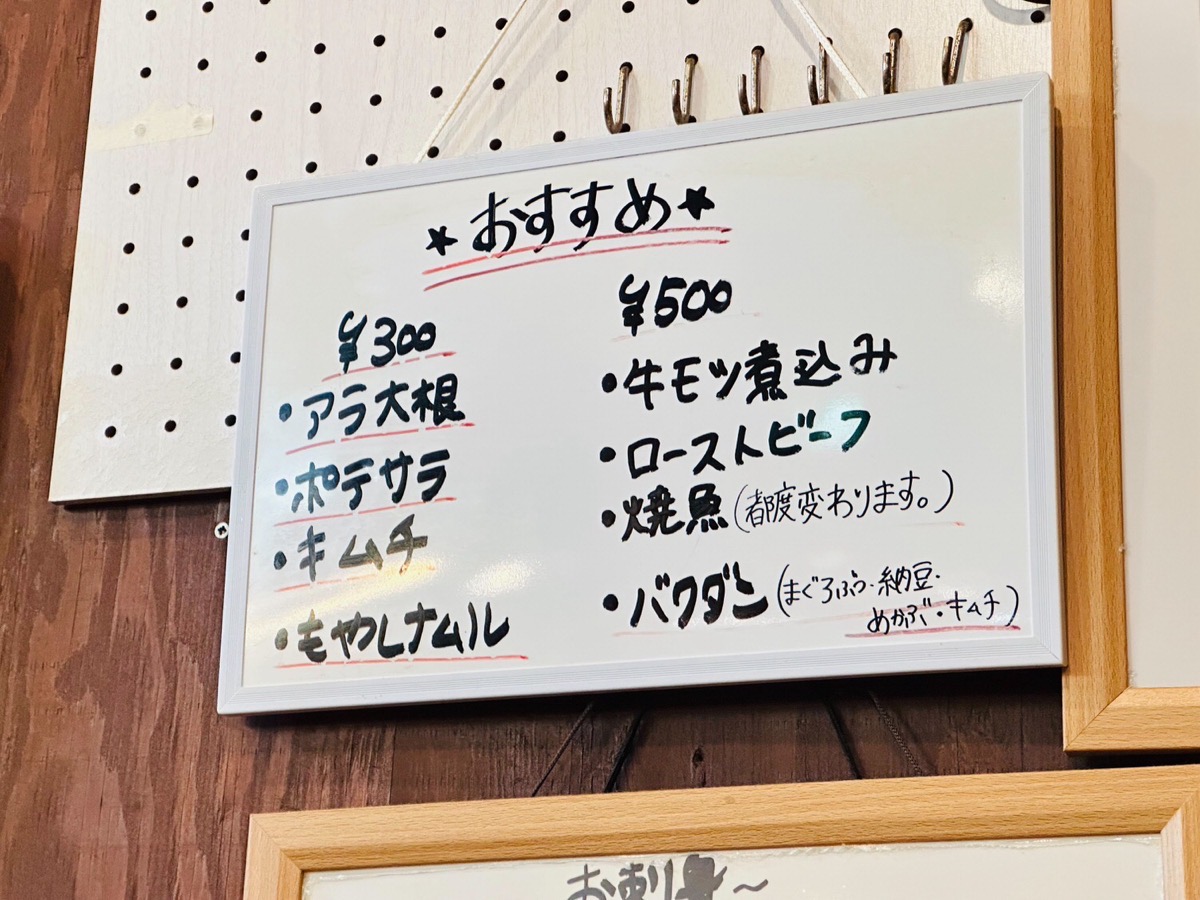 ★おすすめ★
¥300
・アラ大根
・ポテサラ
・キムチ
・もやしナムル
¥500
・牛モツ煮込み
・ローストビーフ
・焼魚(都度変わります。)
・バクダン(まぐろぶつ・納豆・
めかぶ・キムチ)
お刺身～